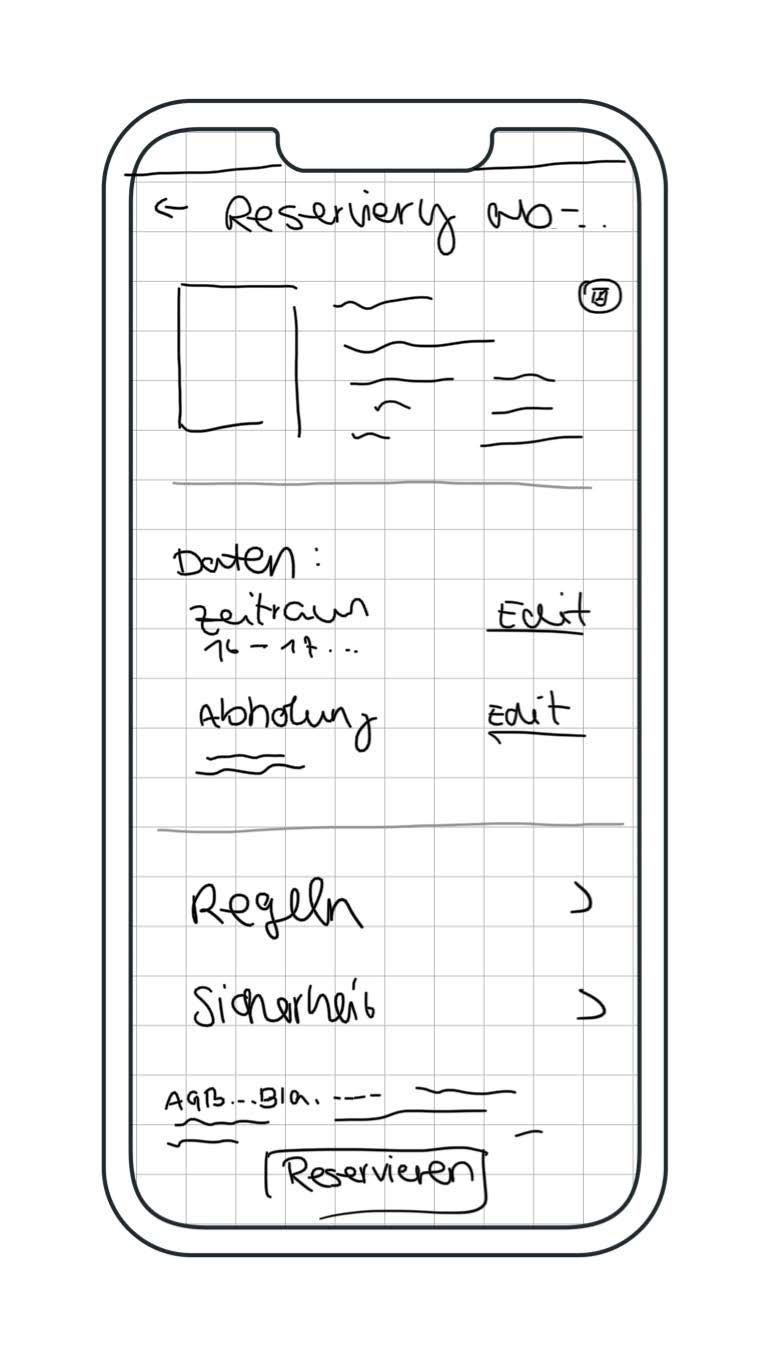 ← Reservierg ab-..
Daten:
Zeitraum Edit
16 - 17...
Abholung Edit
Regeln >
Sicherheit >
AGB...Bla. ----
Reservieren